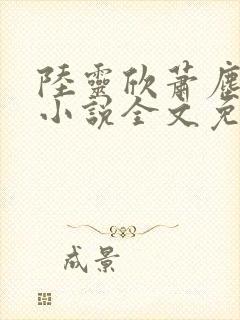 陸靈欣蕭塵
小說全文免
成景